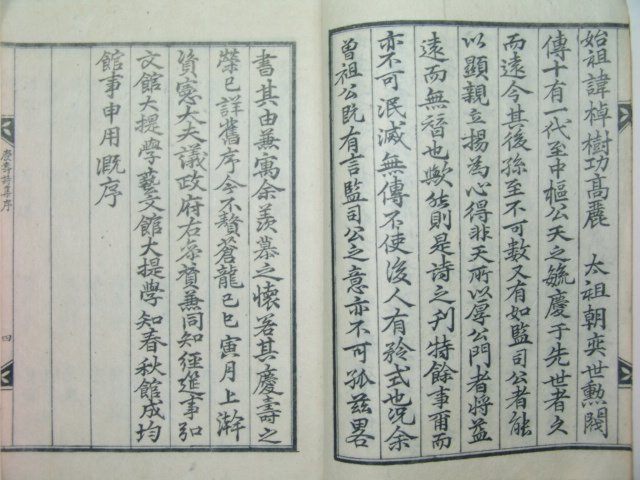 始祖諱棹樹功高麗 太祖朝奕世勲閥
傳十有一代至中樞公天之毓慶于先世者久
而遠今其後孫至不可數又有如監司公者能
以顯親立揚為心得非天所以厚公門者將益
遠而無窞也歟然則是詩之刊特餘事爾而
亦不可泯滅無傳不使後人有矜式也况余
曾祖公既有言監司公之意亦不可孤玆畧
書其由兼寓余羨慕之懷若其慶壽之
榮已詳舊序今不贅蒼龍己巳寅月上澣
資憲大夫議政府右叅賛兼同知經筵事弘
文館大提學藝文館大提學知春秋館成均
館事申用溉序
慶壽詩集序
四